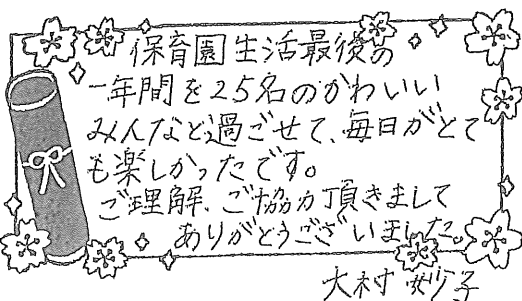 保育園生活最後の
一年間を25名のかわいい
みんなと過ごせて、毎日がとて
も楽しかったです。
ご理解、ご協力頂きまして
ありがとうございました。
大村 妙子